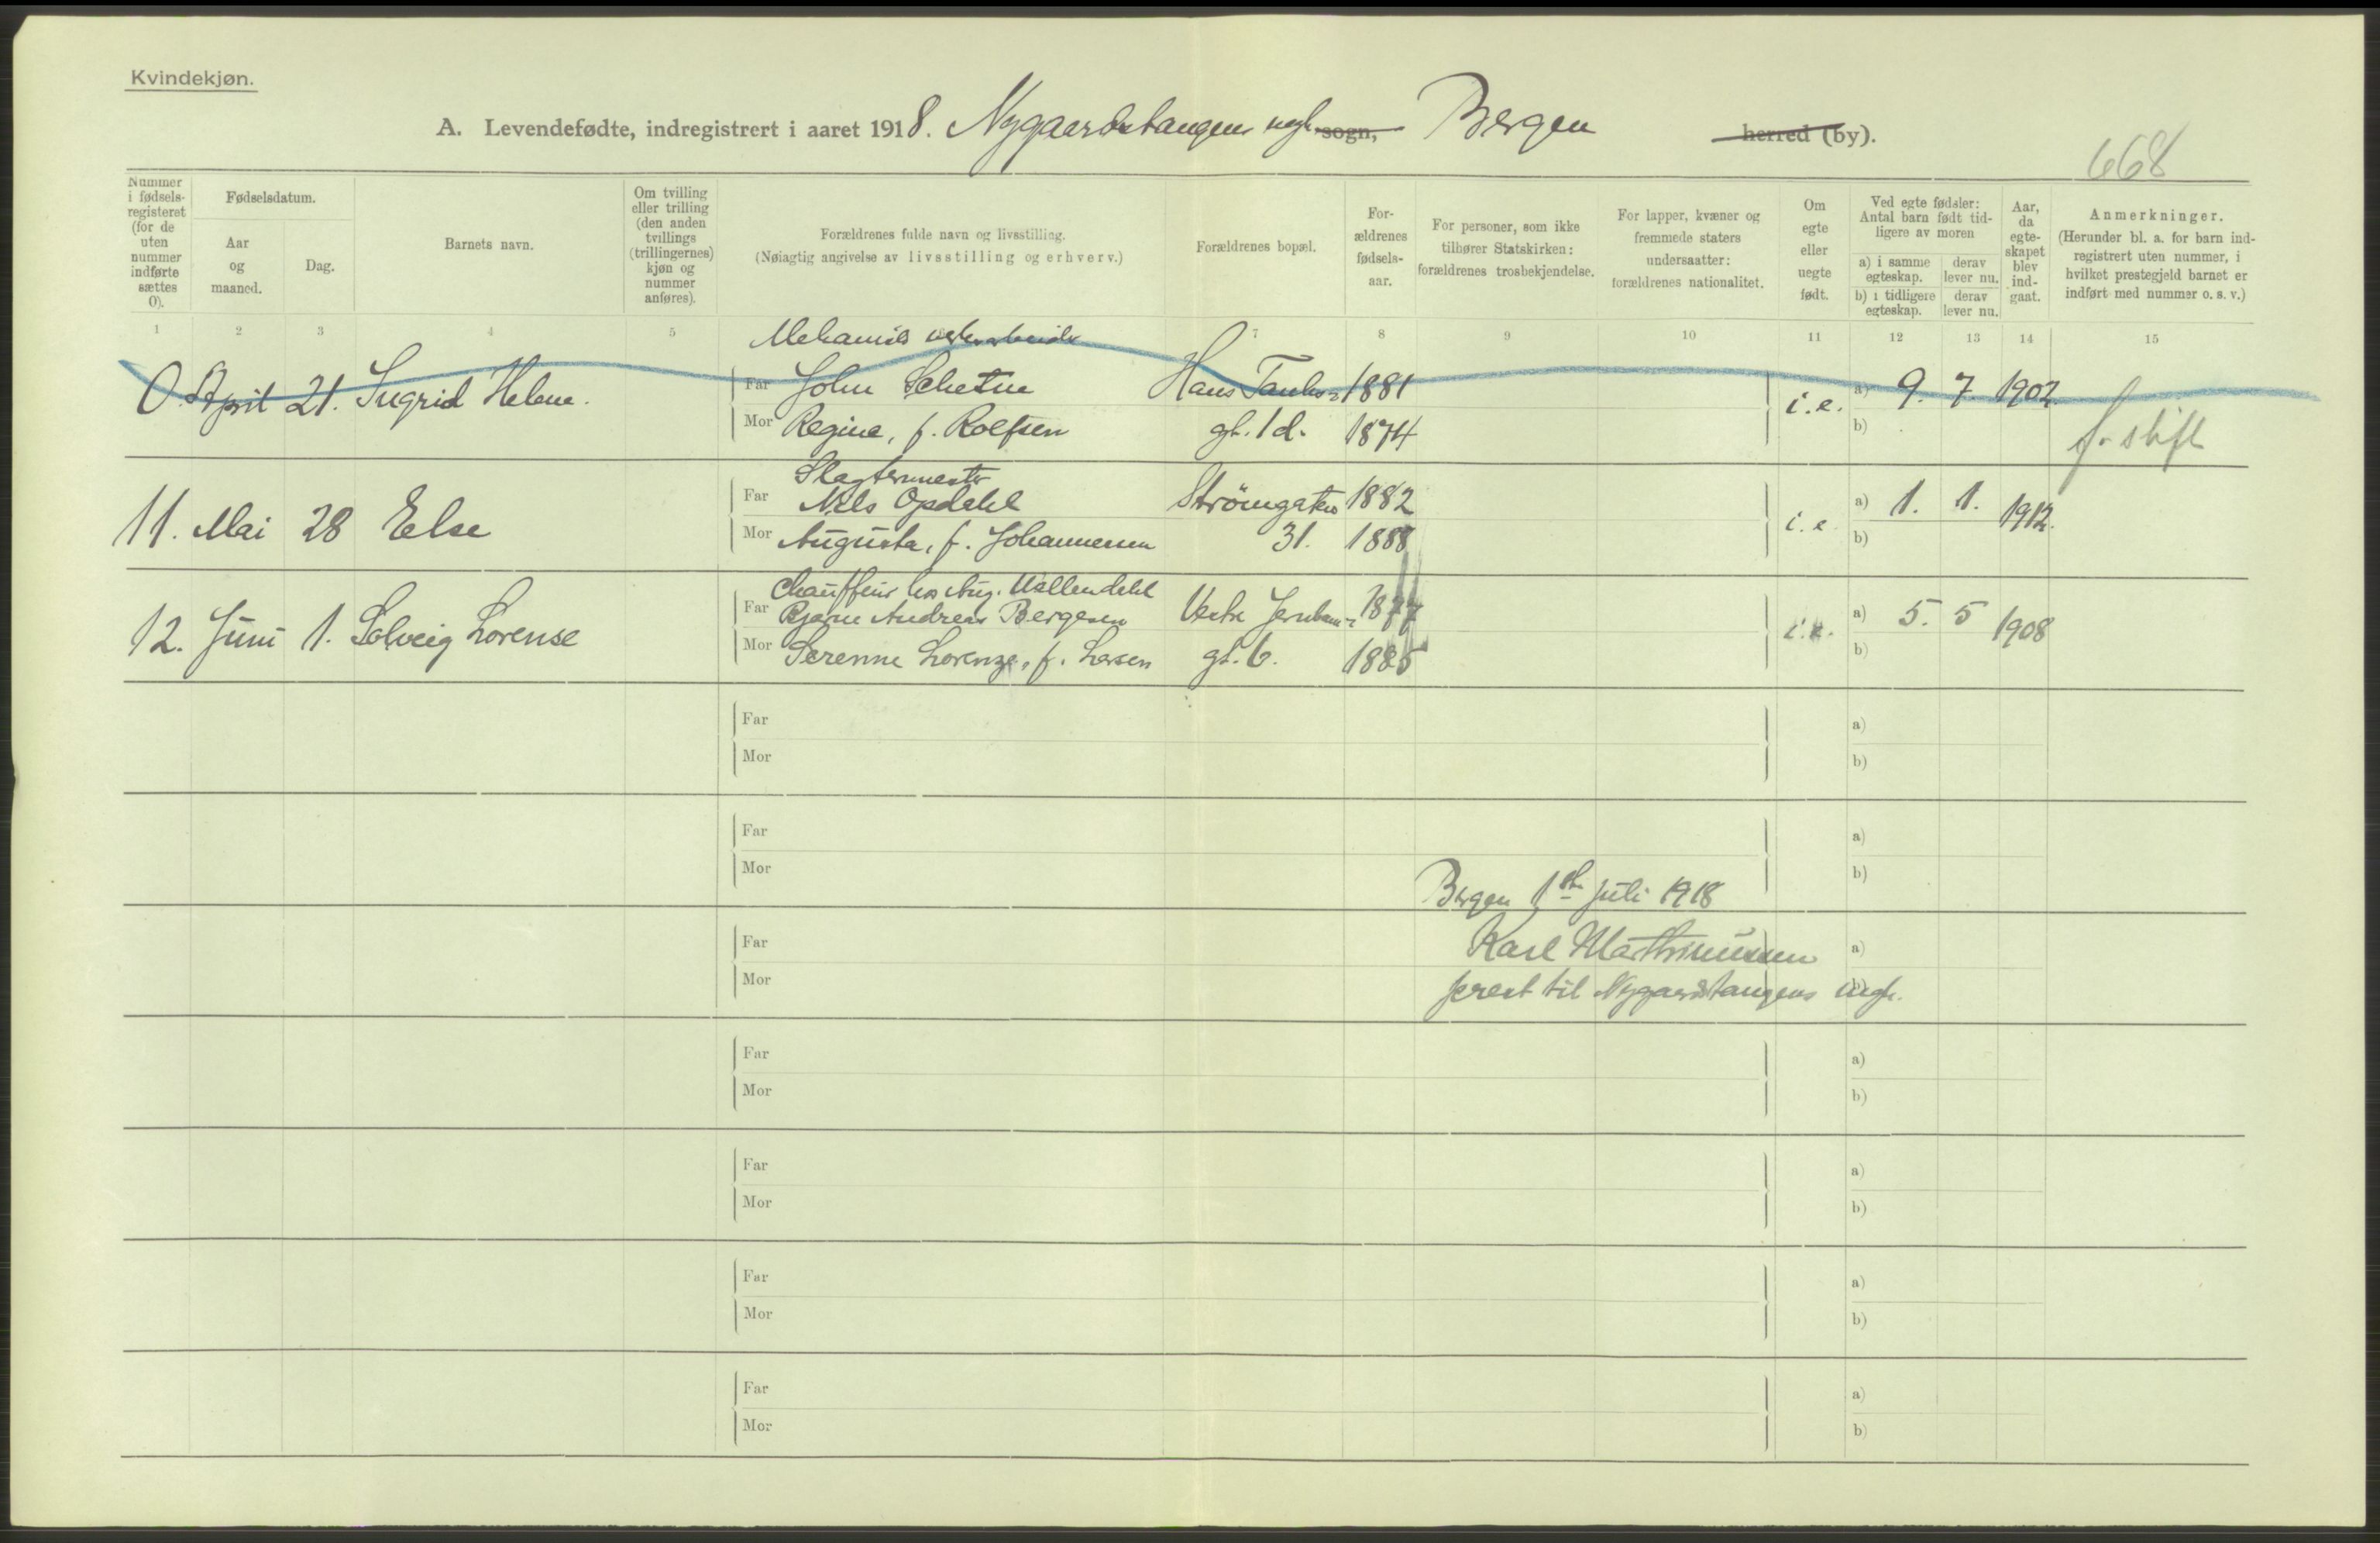 Kvindekjøn.
A. Levendefødte, indregistrert i aaret 1918. Nygaardstangens sogn, Bergen herred (by).
668
Nummer i fødsels-registeret (for de uten nummer indførte sættes 0).
Fødselsdatum.
Aar og maaned.
Dag.
Barnets navn.
Om tvilling eller trilling (den anden tvillings (trillingernes) kjøn og nummer anføres).
Forældrenes fulde navn og livsstilling.
(Nøiagtig angivelse av livsstilling og erhverv.)
Forældrenes bopæl.
For-ældrenes fødsels-aar.
For personer, som ikke tilhører Statskirken: forældrenes trosbekjendelse.
For lapper, kvæner og fremmede staters undersaatter: forældrenes nationalitet.
Om egte eller uegte født.
Ved egte fødsler: Antal barn født tid-ligere av moren
a) i samme egteskap.
derav lever nu.
b) i tidligere egteskap.
derav lever nu.
Aar, da egte-skapet blev ind-gaat.
Anmerkninger.
(Herunder bl. a. for barn ind-registrert uten nummer, i hvilket prestegjeld barnet er indført med nummer o. s. v.)
1 2 3 4 5 7 8 9 10 11 12 13 14 15
0. April 21. Ingrid Helene. Far John Hans Tanks- 1881 i.e. a) 9. 7 1902
Mor Regine, f. Roefsen gt. 1d. 1874 b)
Slagtermester
11. Mai 28 Else Far Nils Opdahl Strömgaten 1882 i.e. a) 1. 1. 1912.
Mor Augusta, f. Johannessen 31. 1888 b)
Chauffeur hos Aug. Wallendahl
12. Juni 1. Solveig Lorense Far Bjarne Andreas Bergesen Vestre Jernban- 1877 i.e. a) 5. 5 1908
Mor Serenne Lorenze, f. Larsen gt. 6. 1885 b)
Far a)
Mor b)
Far a)
Mor b)
Bergen 1st Juli 1918
Far Karl Marthinussen a)
Mor prest til Nygaardstangens
Far a)
Mor b)
Far a)
Mor b)
Far a)
Mor b)
Far a)
Mor b)